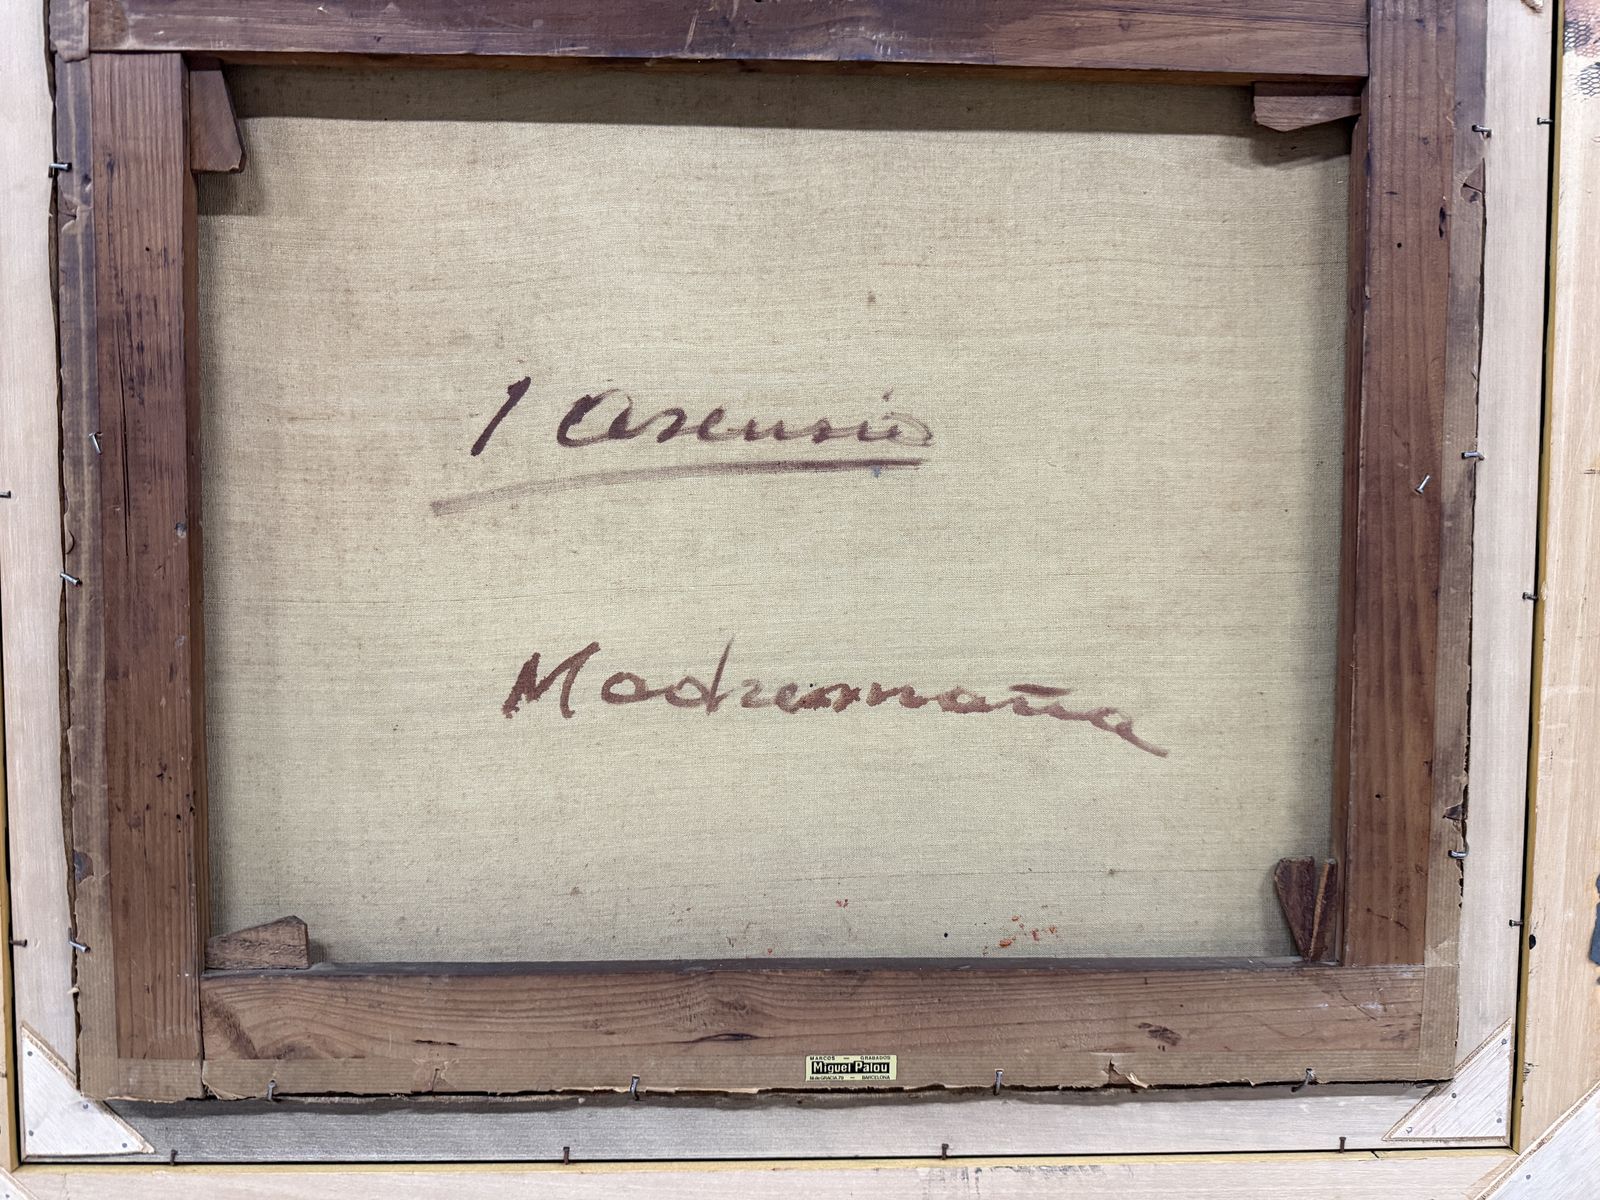 J Asensio
Madremaña
MARCOS — GRABADOS
Miguel Palou
BARCELONA